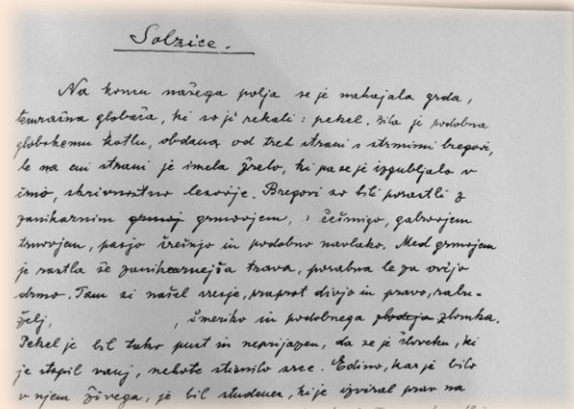 Solzice.
Na koncu našega polja se je nahajala grda,
temračna globača, ki so ji rekali: pekel. Bila je podobna
globokemu kotlu, obdana od treh strani s strmimi bregovi,
le na eni strani je imela žrelo, ki pa se je izgubljalo v
črno, skrivnostno lesovje. Bregovi so bili porastli z
zanikarnim grmovjem, s češmigo, gabrovjem
trnovjem, pasjo črešnjo in podobno navlako. Med grmovjem
je rastla še zanikarnejša trava, porabna le za ovčjo
drmo. Tam si našel resje, praprot divjo in pravo,
, čmeriko in podobnega zlomka.
Pekel je bil tako pust in neprijazen, da se je človeku, ki
je stopil vanj, nehote stisnilo srce. Edino, kar je bilo
v njem živega, je bil studenec, ki je izviral prav na